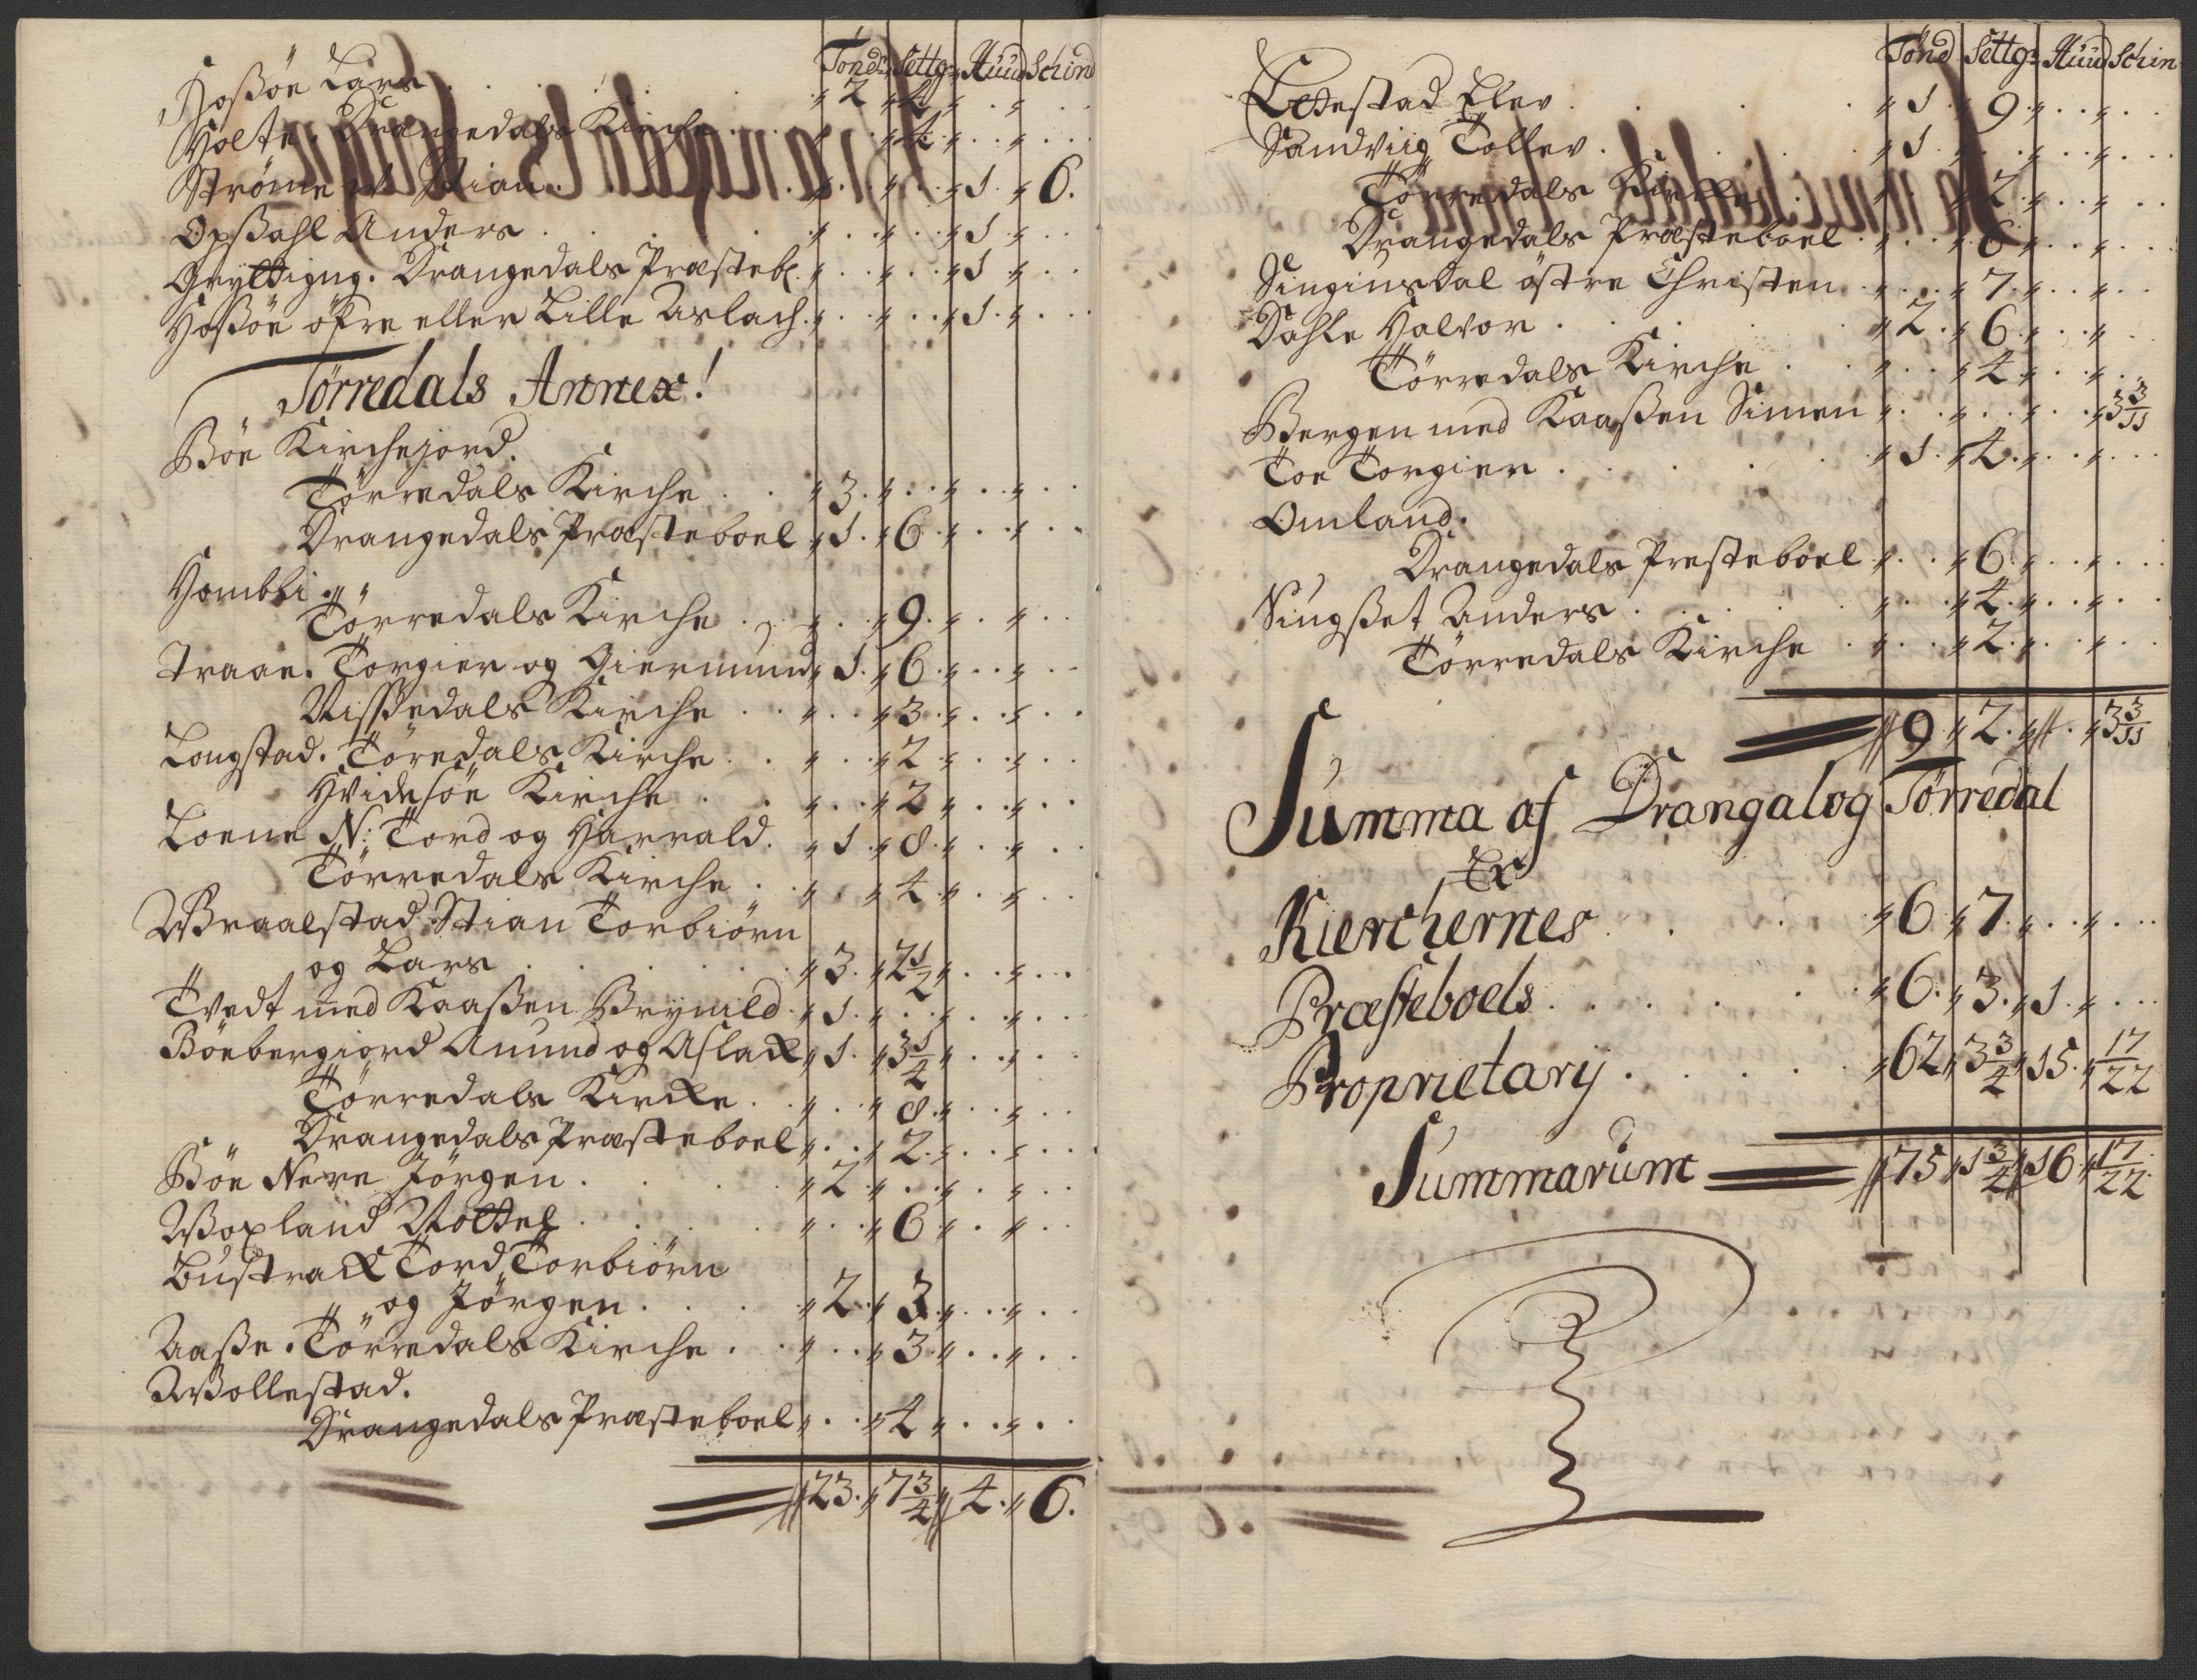 Tønd Settg: Huud Schind
Hoßøe Lars . . . 2 4
Holte. Drangedals Kirche . . 4
Strømme Stian . . 1 6.
Opßahl Anders . . . 1
Drangedals Præstebl. . . 1
Hoßøe øfre eller Lille Aslach . . 1
Tørredals Annex!
Bøe Kirchejord.
Tørredals Kirche . . 3.
Drangedals Præsteboel 1. 6
Hombli.
Tørredals Kirche . . 9.
Traae. Torgier og Giermund 1. 6
Nissedals Kirche . . 3
Longstad. Tøredals Kirche . . 2
Hvidesøe Kirche . . 2
Loene N: Tord og Harrald. 1 8
Tørredals Kirche . 4
Wraalstad Stian Torbiørn
og Lars . . . 3. 2 1/2
Tvedt med Kaaßen Brynild 1.
Bøebergiord Anund og Aslack 1. 3 1/4
Tørredals Kircke . . 8
Drangedals Præsteboel . . 2
Bøe Nere Jørgen . . . 2
Woxland . . . 6
Bustrack Tord, Torbiørn
og Jørgen . . . 2. 3
Aaße. Tørredals Kirche . . 3
Wollestad.
Drangedals Præsteboel . . 4
23. 7 3/4 4. 6.
Tønd Settg: Huud Schin
Elev . . . 1 9
Sandviig Tollev . . . 1
Tørredals Kircke . . 2
Drangedals Præsteboel . . 6
Singiusdal østre Christen . . 7
Dahle Halvor . . . 2. 6
Tørredals Kirche . . 4
Bergen med Kaaßen Simen . . 3 3/11
Toe Torgier . . . 1. 4
Omland.
Drangedals Presteboel . . 6
Anders . . . 4
Tørredals Kirche . . 2
9 2. 3 3/11
Summa af Drangal og Tørredal
Kierchernes . . . 6 7
Præsteboels . . . 6. 3. 1
Proprietarij . . . 62 3 3/4 15. 17/22
Summarum 75 1 3/4 16 17/22